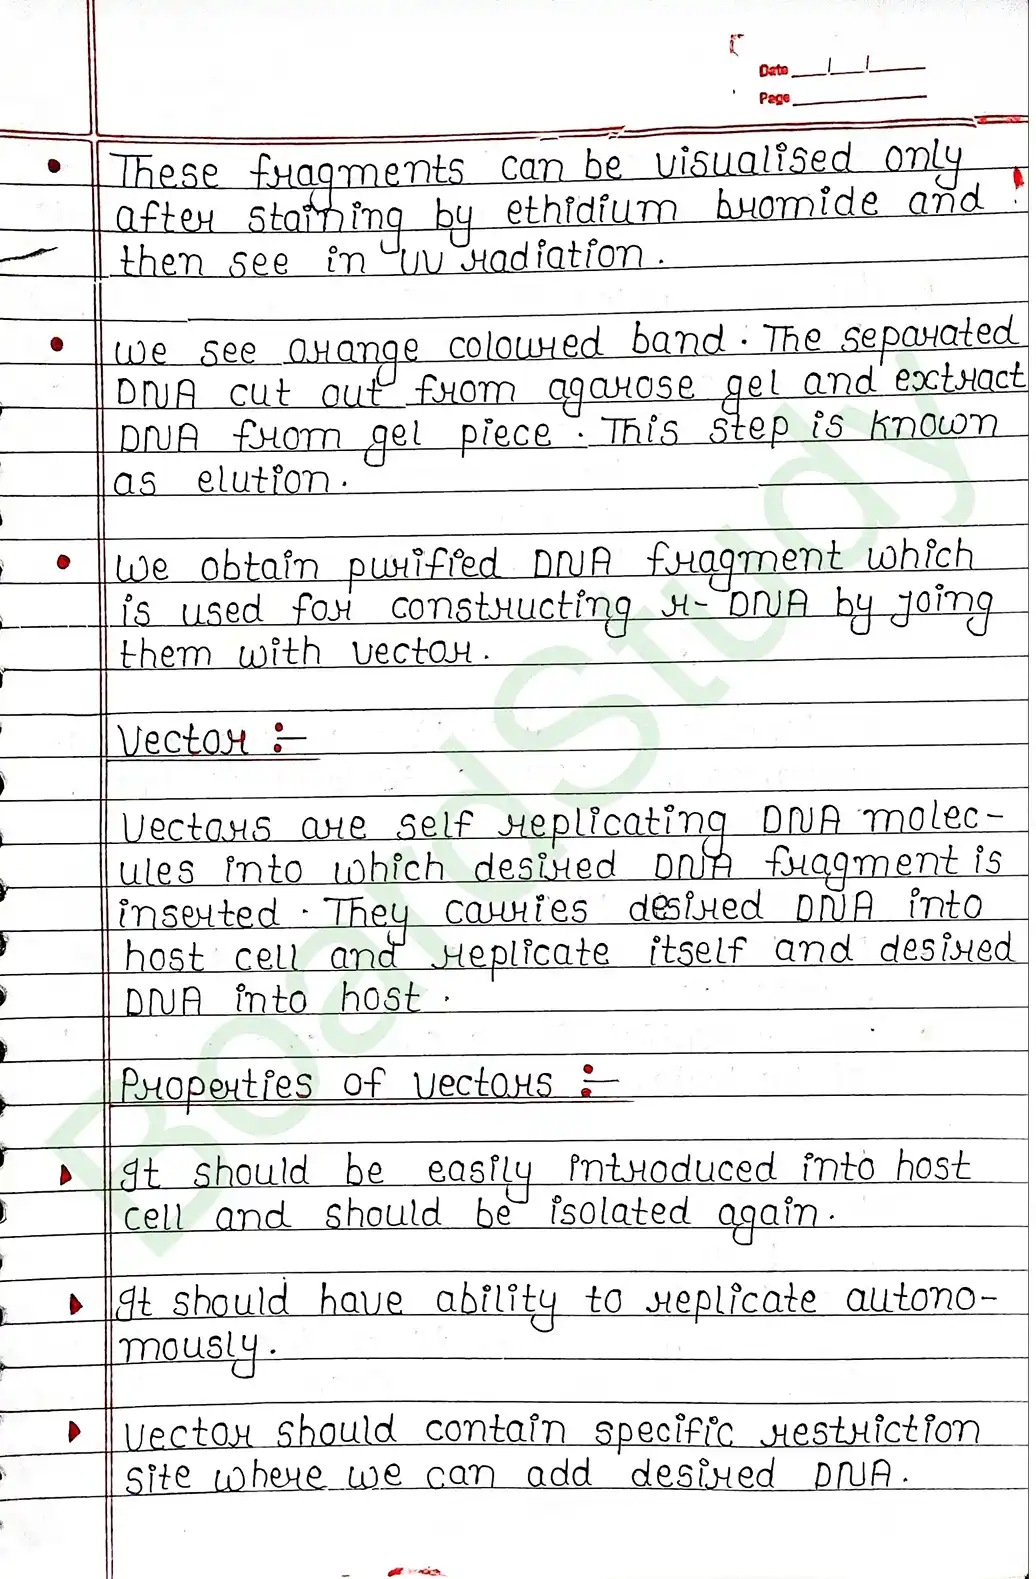 Date
Page
• These fragments can be visualised only
after staining by ethidium bromide and
then see in UV radiation.
• We see orange coloured band. The separated
DNA cut out from agarose gel and extract
DNA from gel piece. This step is known
as elution.
• We obtain purified DNA fragment which
is used for constructing r-DNA by joing
them with vector.
Vector :-
Vectors are self replicating DNA molec-
ules into which desired DNA fragment is
inserted. They carries desired DNA into
host cell and replicate itself and desired
DNA into host.
Properties of vectors :-
It should be easily introduced into host
cell and should be isolated again.
It should have ability to replicate autono-
mously.
Vector should contain specific restriction
site where we can add desired DNA.
BoardStudy